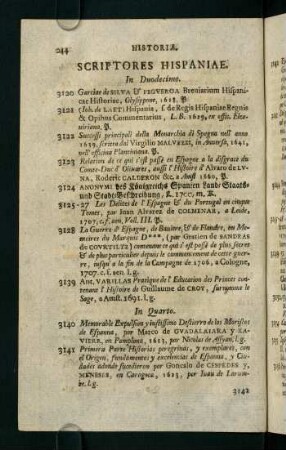 244 HISTORIÆ.
SCRIPTORES HISPANIAE.
In Duodecimo.
3120 Garciae de SILVA & FIGVEROA Breviarium Hispani-
cae Historiae, Olyssipone, 1628. P.
3121 (Joh. de LAET) Hispania, s. de Regis Hispaniae Regnis
& Opibus Commentarius, L. B. 1629, ex offic. Elze-
viriana. P.
3122 Successi principali della Monarchia di Spagna nell' anno
1639. scritti dal Virgilio MALVEZZI, in Anversa, 1641,
nell' officina Plantiniana. P.
3123 Relation de ce qui s'est passé en Espagne a la disgrace du
Comte-Duc d' Olivares, aussi l' Histoire d' Alvaro de LV-
NA, Roderic CALDERON &c. a Amst 1660, P.
3124 ANONYMI des Königreichs Spanien Lands-Staats-
und Stadt-Beschreibung, L. 1700, m. K.
3125-27 Les Delices de l' Espagne & du Portugal en cinque
Tomes, par Juan Alvarez de COLMENAR, a Leide,
1707. c. f. aen. Voll. III. P.
3128 La Guerre d' Espagne, de Baviere, & de Flandre, ou Me-
moires du Marquis D***, (par Gratien de SANDRAS
de COVRTILZ) contenant ce qui s' est passé de plus secret
& de plus particulier depuis le commencement de cette guer-
re, jusqu' a la fin de la Campagne de 1706, a Cologne,
1707. c. f. aen. l. g.
3139 Ant. VARILLAS Pratique de l' Education des Princes con-
tenant l' Histoire de Guillaume de CROY, surnommé le
Sage, a Amst. 1691. l. g.
In Quarto.
3140 Memorable Expulsion y iustissimo Destierro de los Moriscos
de Espanna, por Marco de GVADALAIARA y XA-
VIERR, en Pamplona, 1613, por Nicolas de Assyan. l. g.
3141 Primera Parte Historias peregrinas, y exemplares, con
el Origen, fundamentos y excelencias de Espanna, y Ciu-
dades adonde sucedieron por Gonzalo de CESPEDES y
MENESES, en Caragoça, 1623, por Iuan de Larum-
be. l. g.
3142